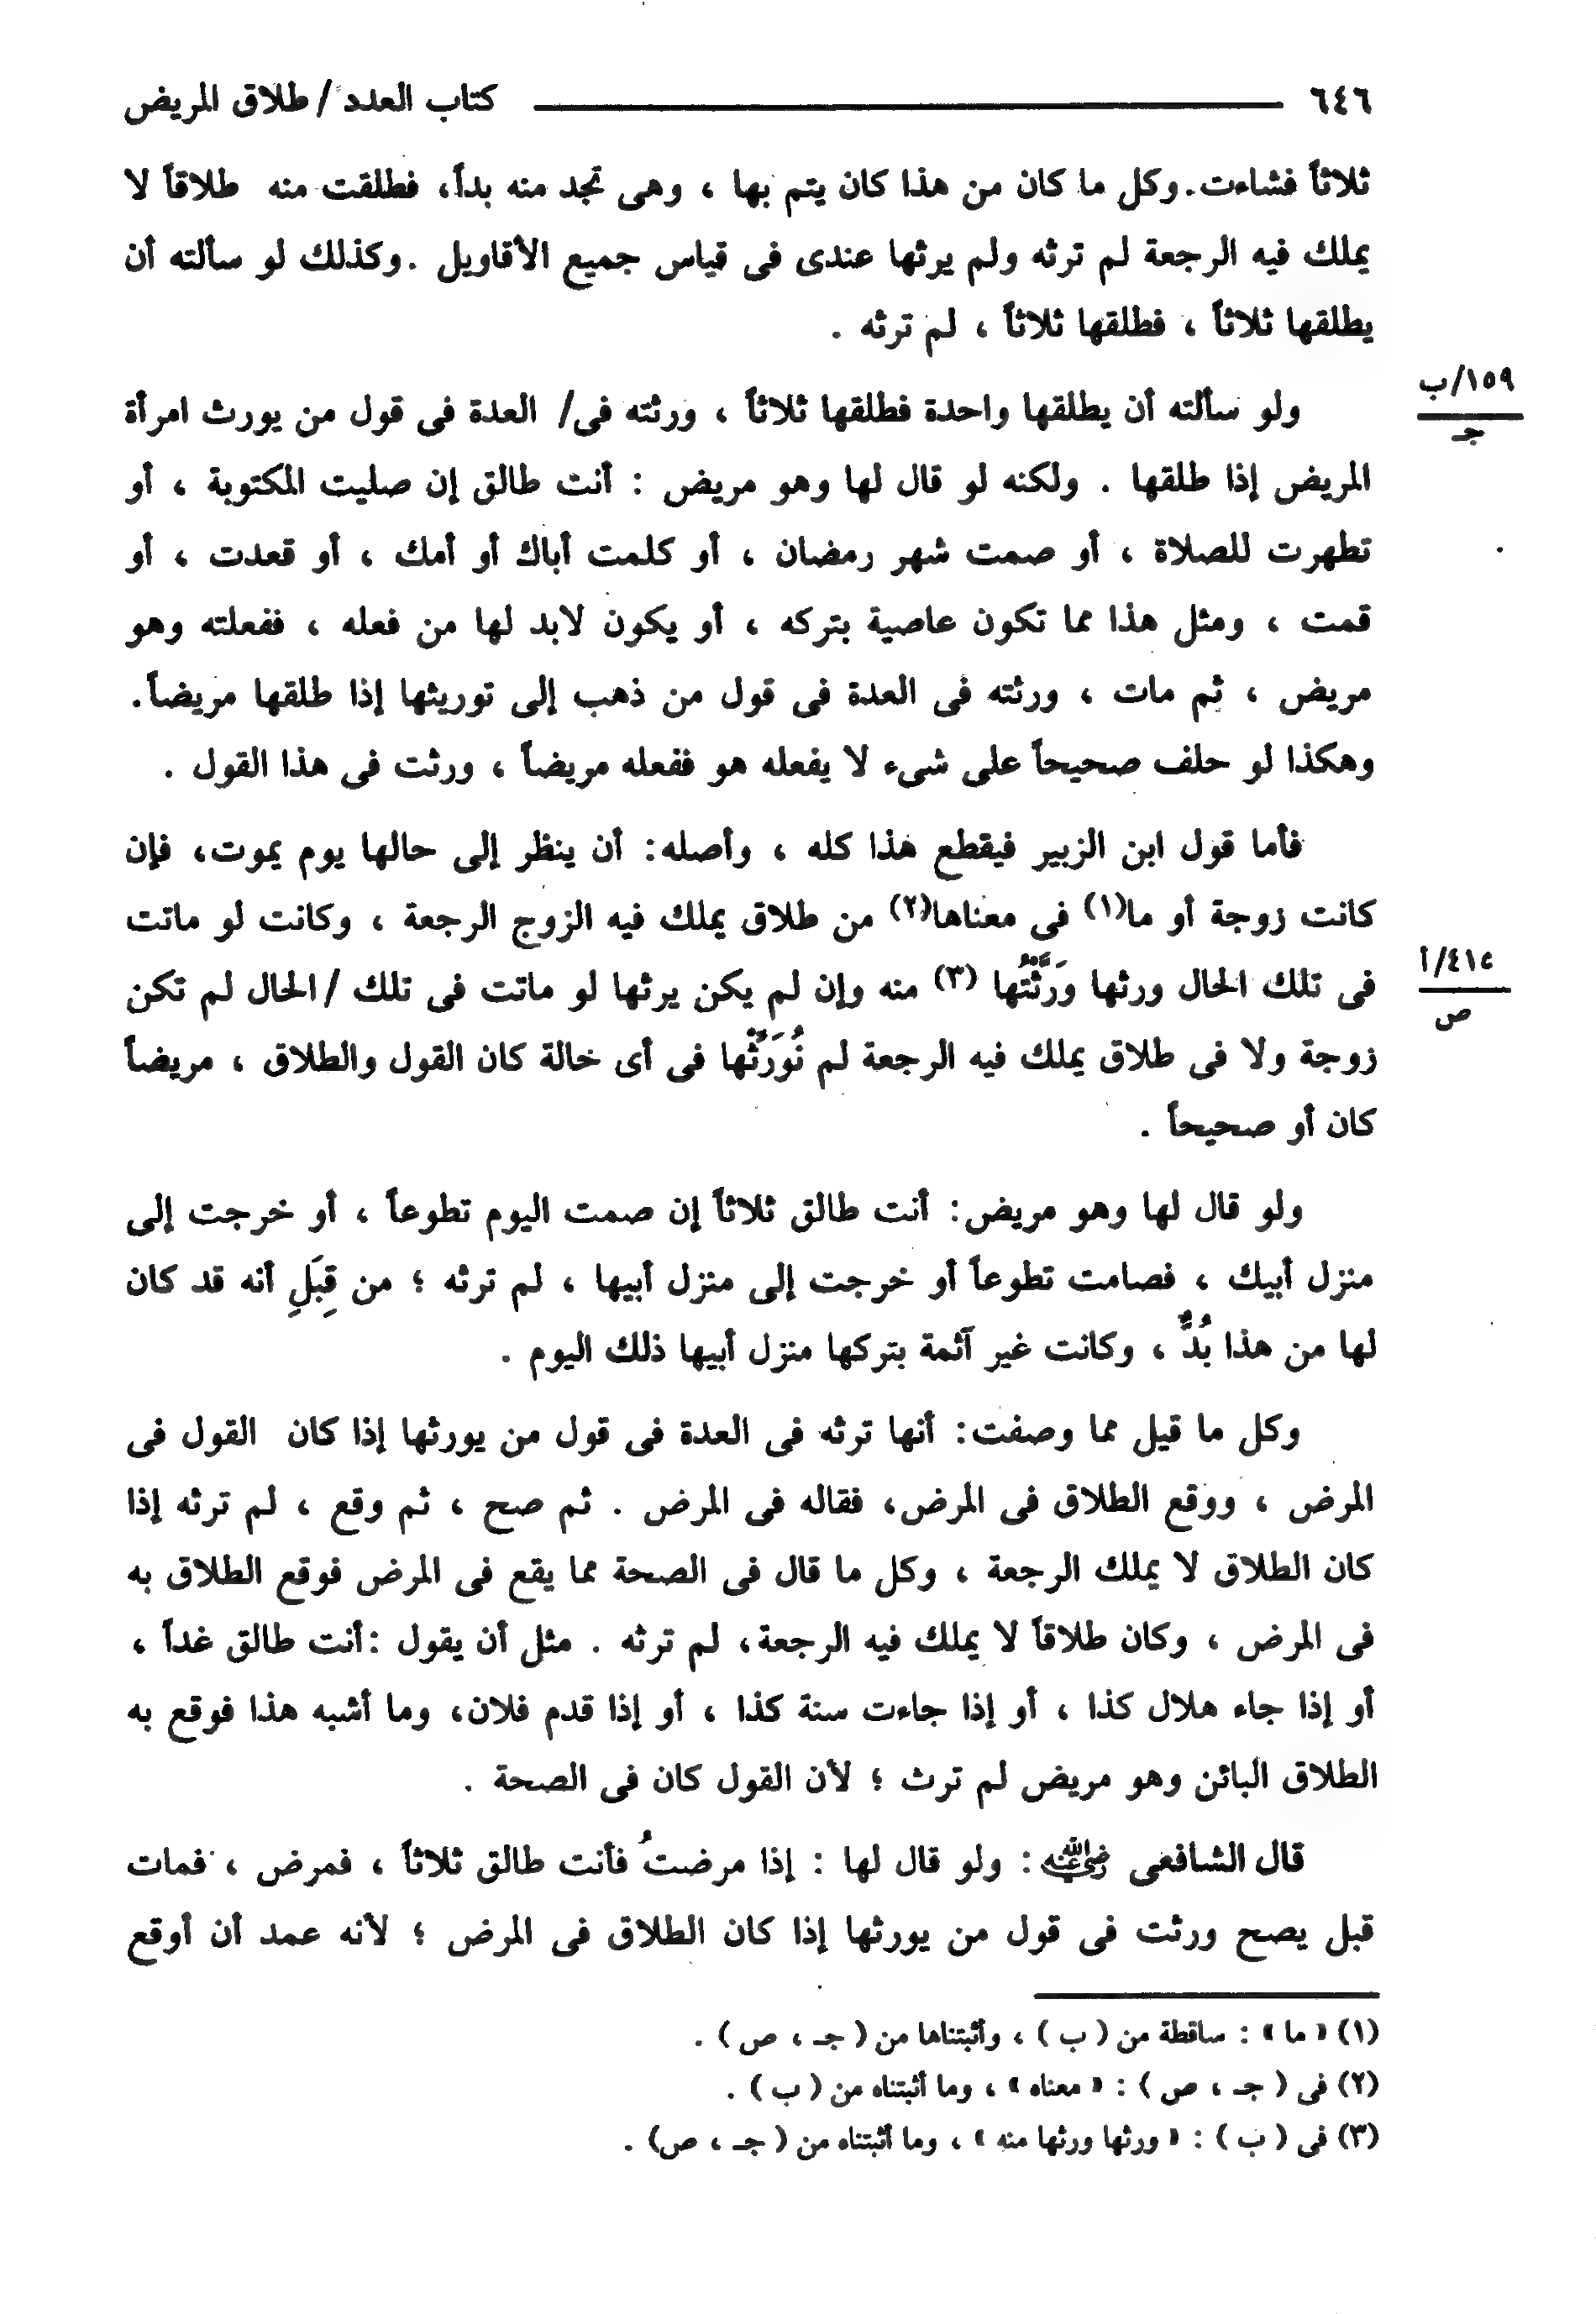 ٦٤٦ كتاب العدد / طلاق المريض
ثلاثاً فشاءت. وكل ما كان من هذا كان يتم بها ، وهى تجد منه بداً، فطلقت منه طلاقاً لا
يملك فيه الرجعة لم ترثه ولم يرثها عندى فى قياس جميع الأقاويل . وكذلك لو سألته أن
يطلقها ثلاثاً ، فطلقها ثلاثاً ، لم ترثه .
ولو سألته أن يطلقها واحدة فطلقها ثلاثاً ، ورثته فى/ العدة فى قول من يورث امرأة
١٥٩/ب
جـ
المريض إذا طلقها . ولكنه لو قال لها وهو مريض : أنت طالق إن صليت المكتوبة ، أو
تطهرت للصلاة ، أو صمت شهر رمضان ، أو كلمت أباك أو أمك ، أو قعدت ، أو
قمت ، ومثل هذا مما تكون عاصية بتركه ، أو يكون لابد لها من فعله ، ففعلته وهو
مريض ، ثم مات ، ورثته فى العدة فى قول من ذهب إلى توريثها إذا طلقها مريضاً.
وهكذا لو حلف صحيحاً على شىء لا يفعله هو ففعله مريضاً ، ورثت فى هذا القول .
فأما قول ابن الزبير فيقطع هذا كله ، وأصله: أن ينظر إلى حالها يوم يموت، فإن
كانت زوجة أو ما(١) فى معناها(٢) من طلاق يملك فيه الزوج الرجعة ، وكانت لو ماتت
فى تلك الحال ورثها وَرَّثْتُها (٣) منه وإن لم يكن يرثها لو ماتت فى تلك /الحال لم تكن
٤١٥/أ
ص
زوجة ولا فى طلاق يملك فيه الرجعة لم نُوَرِّثْها فى أى حالة كان القول والطلاق ، مريضاً
كان أو صحيحاً .
ولو قال لها وهو مريض: أنت طالق ثلاثاً إن صمت اليوم تطوعاً ، أو خرجت إلى
منزل أبيك ، فصامت تطوعاً أو خرجت إلى منزل أبيها ، لم ترثه ؛ من قِبَلِ أنه قد كان
لها من هذا بُدٌّ ، وكانت غير آثمة بتركها منزل أبيها ذلك اليوم .
وكل ما قيل مما وصفت: أنها ترثه فى العدة فى قول من يورثها إذا كان القول فى
المرض ، ووقع الطلاق فى المرض، فقاله فى المرض . ثم صح ، ثم وقع ، لم ترثه إذا
كان الطلاق لا يملك الرجعة ، وكل ما قال فى الصحة مما يقع فى المرض فوقع الطلاق به
فى المرض ، وكان طلاقاً لا يملك فيه الرجعة، لم ترثه . مثل أن يقول :أنت طالق غداً ،
أو إذا جاء هلال كذا ، أو إذا جاءت سنة كذا ، أو إذا قدم فلان، وما أشبه هذا فوقع به
الطلاق البائن وهو مريض لم ترث ؛ لأن القول كان فى الصحة .
قال الشافعى رضي الله عنه : ولو قال لها : إذا مرضتُ فأنت طالق ثلاثاً ، فمرض ، فمات
قبل يصح ورثت فى قول من يورثها إذا كان الطلاق فى المرض ؛ لأنه عمد أن أوقع
(١) « ما » : ساقطة من ( ب ) ، وأثبتناها من ( جـ ، ص ) .
(٢) فى ( جـ ، ص ) : « معناه » ، وما أثبتناه من ( ب ) .
(٣) فى ( ب ) : « ورثها ورثها منه » ، وما أثبتناه من ( جـ ، ص) .